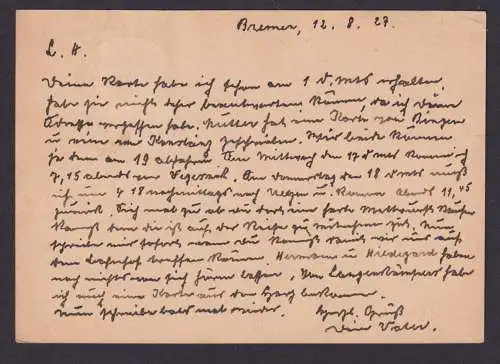 Bremen, 12. 8. 27.
L. H.
Deine Karte habe ich schon am 1 d. Mts erhalten,
habe sie nicht eher beantworten können, da ich Deine
Adresse vergessen habe. Mutter hat eine Karte von Bingen
u eine von Konstanz geschrieben. Wir beide können
ja dann am 19 abfahren Am Mittwoch den 17 d Mts komme ich
7,15 abends von Vegesack. Am Donnerstag den 18 d Mts muß
ich um 4 18 nachmittags nach und komme abends 11,45
zurück. Sieh mal zu ob du dort eine harte Mettwurst kaufen
kannst den die ich auf der Reise zu Nun
schreibe mir sofort wann du kommst damit wir uns auf
dem Bahnhof treffen können. Hermann u Hildegard haben
noch nichts von sich hören lassen. Von habe
ich auch eine Karte aus den Harz bekommen.
Nun schreibe bald mal wieder. Herzl. Gruß
Dein Vater.